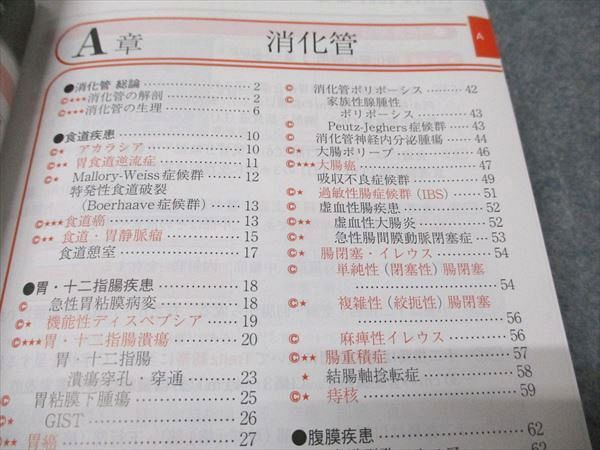 A章 消化管
A
●消化管 総論 2
©★★★消化管の解剖 2
©★★★消化管の生理 6
●食道疾患 10
©★ アカラシア 10
©★★ 胃食道逆流症 11
©★ Mallory-Weiss症候群 12
特発性食道破裂
(Boerhaave症候群) 13
©★★★食道癌 13
©★★ 食道・胃静脈瘤 15
食道憩室 17
●胃・十二指腸疾患 18
© 急性胃粘膜病変 18
©★ 機能性ディスペプシア 19
©★★★胃・十二指腸潰瘍 20
胃・十二指腸
潰瘍穿孔・穿通 23
© 胃粘膜下腫瘍 25
©★ GIST 26
©★★ 胃癌 27
© 消化管ポリポーシス 42
© 家族性腺腫性
ポリポーシス 43
© Peutz-Jeghers症候群 43
© 消化管神経内分泌腫瘍 44
©★ 大腸ポリープ 46
©★★★大腸癌 47
吸収不良症候群 49
©★ 過敏性腸症候群 (IBS) 51
© 虚血性腸疾患 52
©★★ 虚血性大腸炎 52
©★ 急性腸間膜動脈閉塞症 53
©★ 腸閉塞・イレウス 54
© 単純性 (閉塞性) 腸閉塞
54
©★ 複雑性 (絞扼性) 腸閉塞
56
© 麻痺性イレウス 56
©★★ 腸重積症 57
★ 結腸軸捻転症 58
©★ 痔核 59
●腹膜疾患 62
62